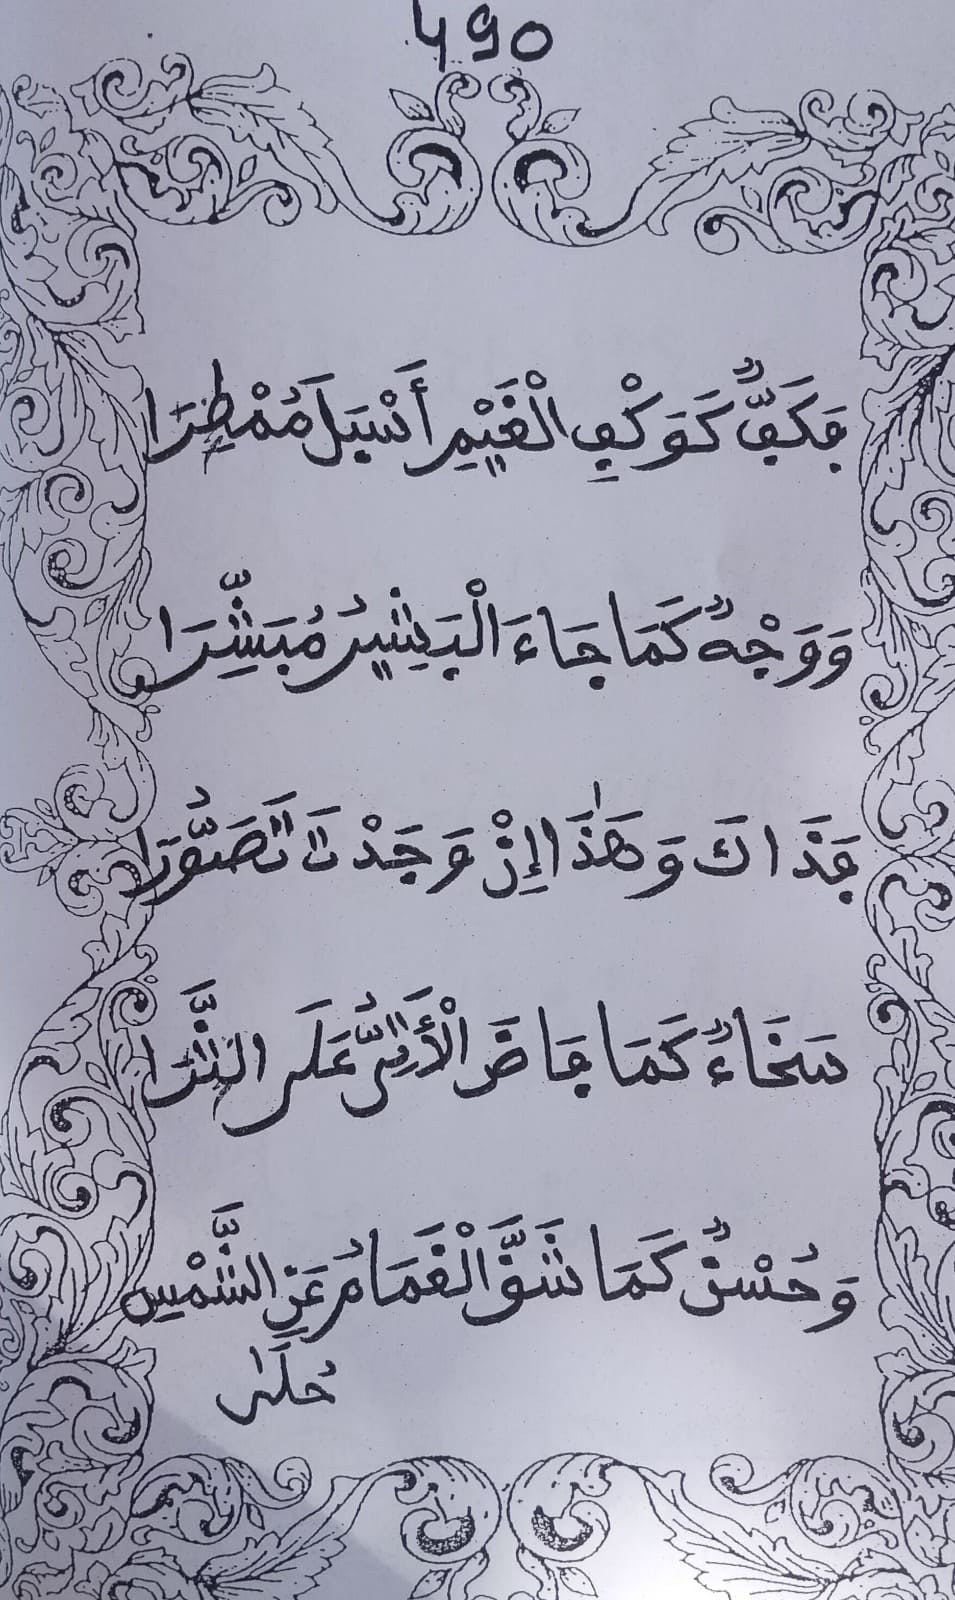 490
فَكَفٌّ كَوَكْفِ الْغَيْمِ أَسْبَلَ مُمْطِرَا
وَوَجْهٌ كَمَا جَاءَ الْبَشِيرُ مُبَشِّرَا
فَذَاكَ وَهَٰذَا إِنْ وَجَدْتَ تَصَوُّرَا
سَخَاءٌ كَمَا فَاضَ الْأَتِيُّ عَلَى الثَّرَا
وَحُسْنٌ كَمَا شَقَّ الْغَمَامُ عَنِ الشَّمْسِ
حُلَىٰ